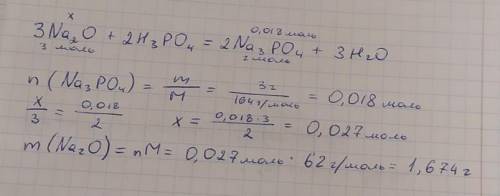 x 0,018 моль
3Na₂O + 2H₃PO₄ = 2Na₃PO₄ + 3H₂O
3 моль 2 моль
n (Na₃PO₄) = m/M = 3г/164г/моль = 0,018 моль
x/3 = 0,018/2 x = 0,018·3/2 = 0,027 моль
m (Na₂O) = nM = 0,027 моль · 62 г/моль = 1,674 г